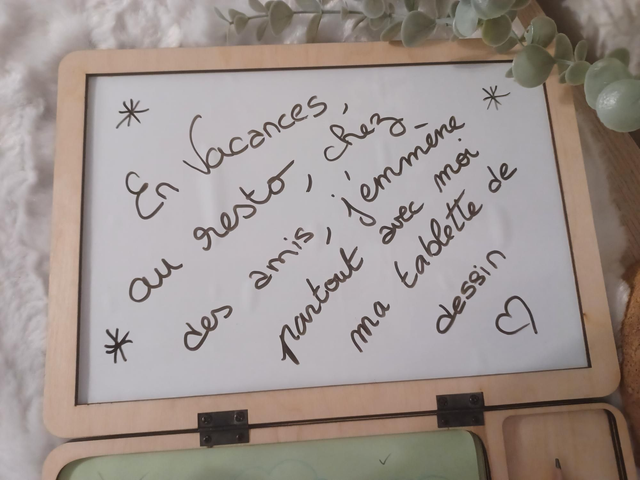 En Vacances,
au resto, chez
des amis, j'emmène
partout avec moi
ma tablette de
dessin